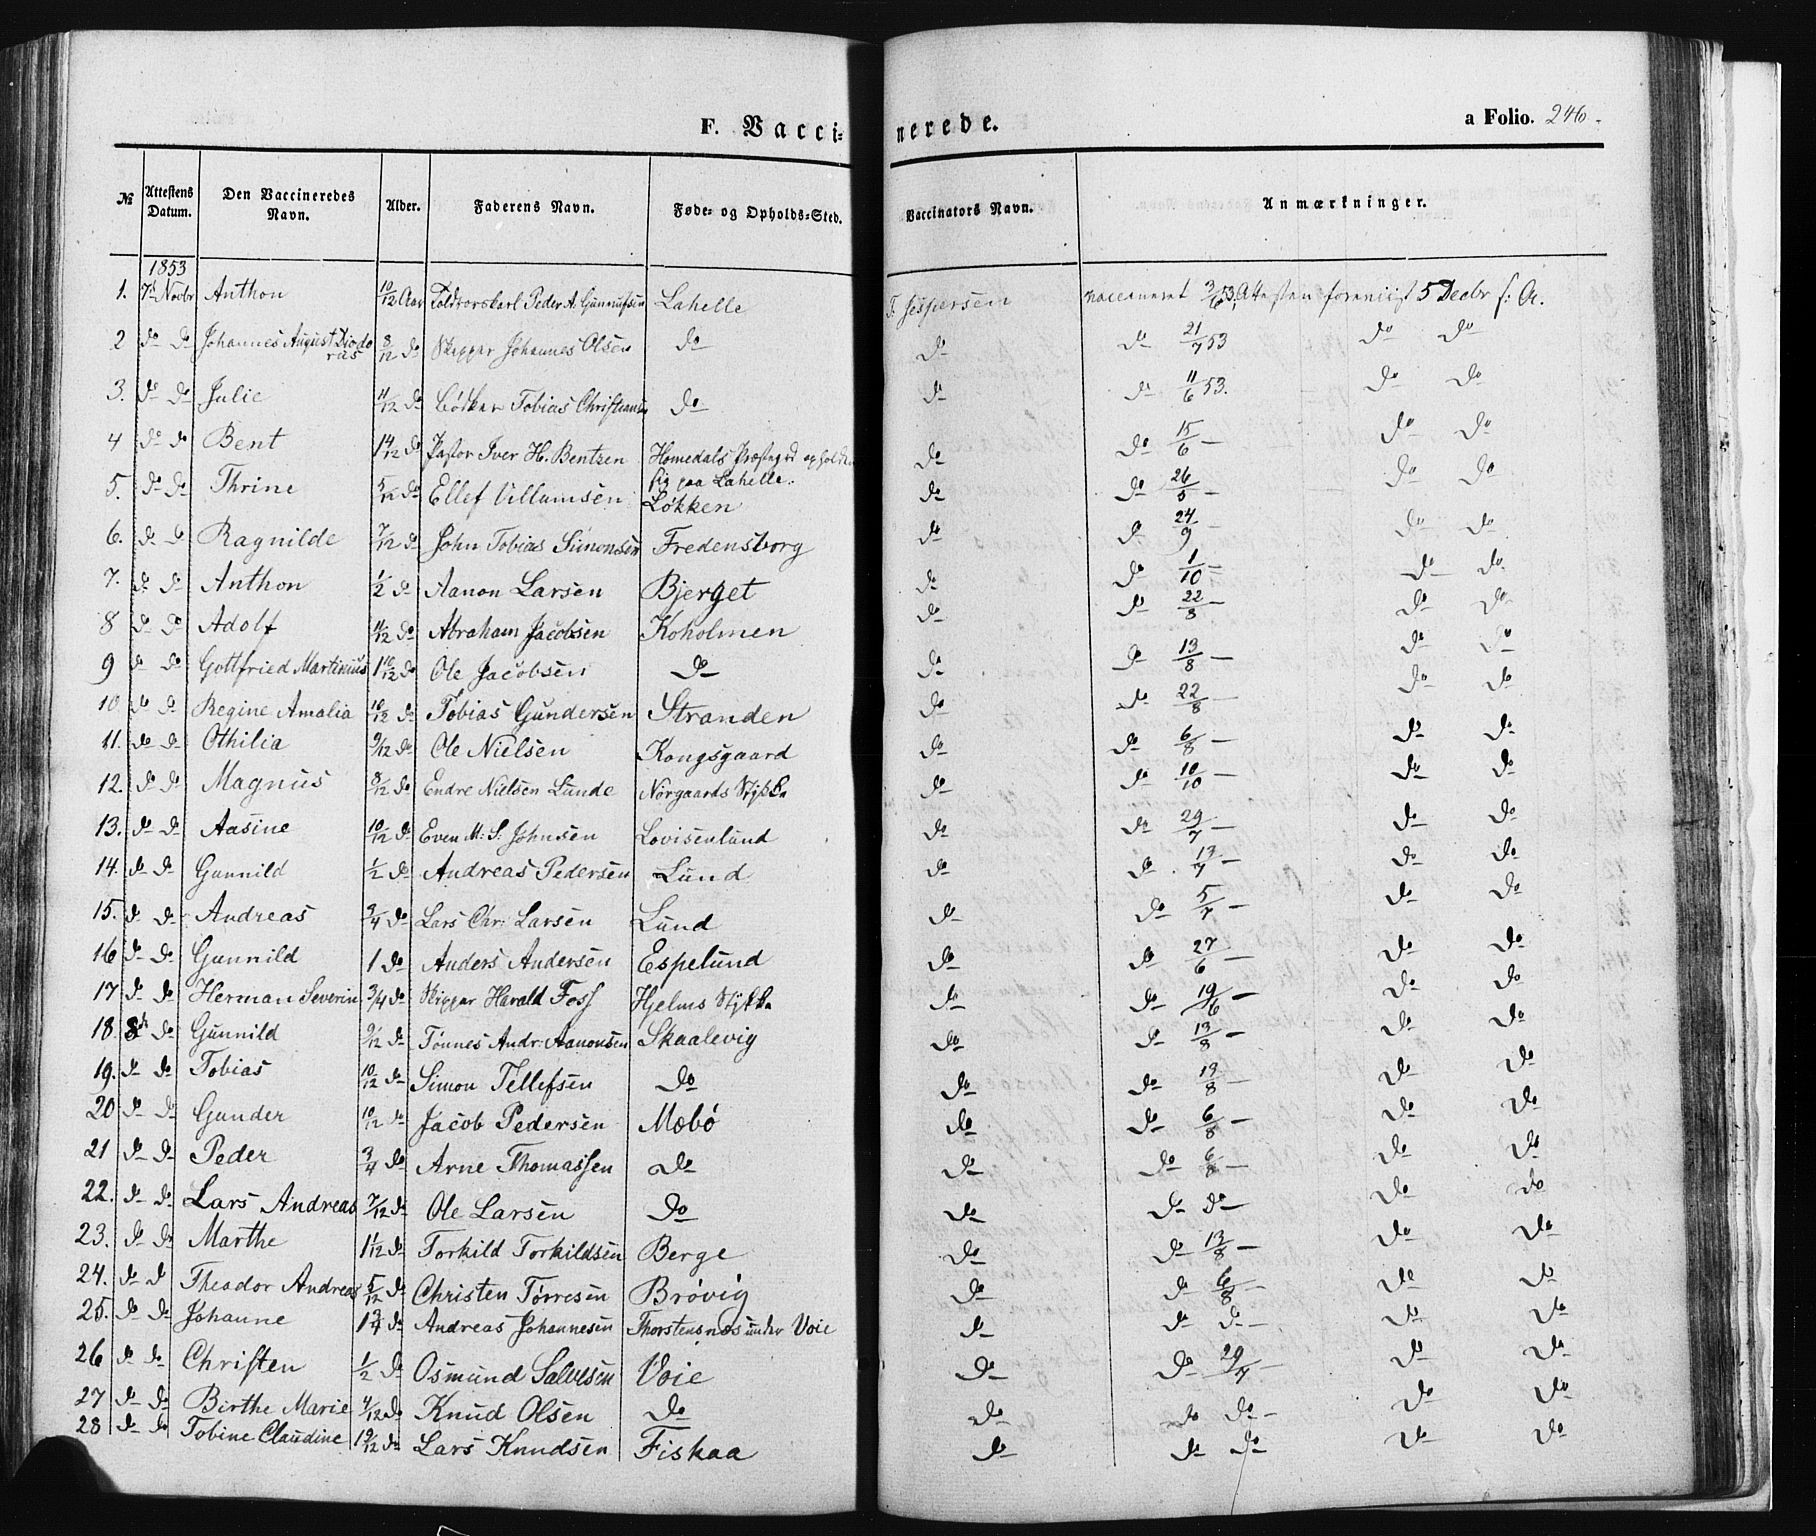 F. Vaccinerede. a Folio. 246.
№ Attestens Datum. Den Vaccineredes Navn. Alder. Faderens Navn. Føde- og Opholds-Sted. Vaccinators Navn. Anmærkninger.
1853
1. 7d Novbr Anthon 10/12 Aar Peder A. Gunnufsen Lahelle T. Jespersen vaccineret 3/6 53, Attesten foreviist 5 Decbr s: A.
2 do do Johannes August Diodoras 8/12 do Skipper Johannes Olsen do do do 21/7 53 do do
3. do do Julie 11/12 do Bødker Tobias Christiansen do do do 11/6 53. do do
4 do do Bent 1 4/12 do Pastor Iver H. Bentzen Homedals Præstegrd opholder sig paa Lahelle. do do 15/6 — do do
5. do do Thrine 5/12 do Ellef Villumsen Løkken do do 26/5 — do do
6. do do Ragnilde 7/12 do John Tobias Simonsen Fredensborg do do 24/9 — do do
7. do do Anthon 1/2 do Aanon Larsen Bjerget do do 1/10 — do do
8 do do Adolf 11/12 do Abraham Jacobsen Koholmen do do 22/8 — do do
9 do do Gottfried Martinius 1 10/12 do Ole Jacobsen do do do 13/8 — do do
10. do do Regine Amalia 10/12 do Tobias Gundersen Stranden do do 22/8 — do do
11. do do Othilia 9/12 do Ole Nielsen Kongsgaard do do 6/8 — do do
12. do do Magnus 8/12 do Endre Nielsen Lunde Nørgaards Stykke do do 10/10 — do do
13. do do Aasine 10/12 do Even M: S: Johnsen Lovisenlund do do 29/7 — do do
14. do do Gunnild 1/2 do Andreas Pedersen Lund do do 13/7 — do do
15. do do Andreas 3/4 do Lars Chr: Larsen Lund do do 5/7 — do do
16 do do Gunnild 1 do Anders Andersen Espelund do do 27/6 — do do
17 do do Herman Severin 3/4 do Skipper Harald Foss Hjelms Stykke do do 19/6 — do do
18. 8d do Gunnild 9/12 do Tønnes Andr: Aanonsen Skaalevig do do 13/8 — do do
19. do do Tobias 10/12 do Simon Tellefsen do do do 13/8 — do do
20 do do Gunder 10/12 do Jacob Pedersen Mæbø do do 6/8 — do do
21 do do Peder 3/4 do Arne Thomassen do do do 6/8 — do do
22. do do Lars Andreas 7/12 do Ole Larsen do do do do — do do
23. do do Marthe 1 1/12 do Torkild Torkildsen Berge do do 13/8 — do do
24. do do Theador Andreas 5/12 do Christen Tørresen Brøvig do do 6/8 — do do
25. do do Johanne 1 3/4 do Andreas Johannesen Thorstensnæs under Voie do do do — do do
26 do do Christen 1/2 do Osmund Salvesen Voie do do 29/7 — do do
27 do do Birthe Marie 4/12 do Knud Olsen do do do do — do do
28 do do Tobine Claudine 1 9/12 do Lars Knudsen Fiskaa do do do do do